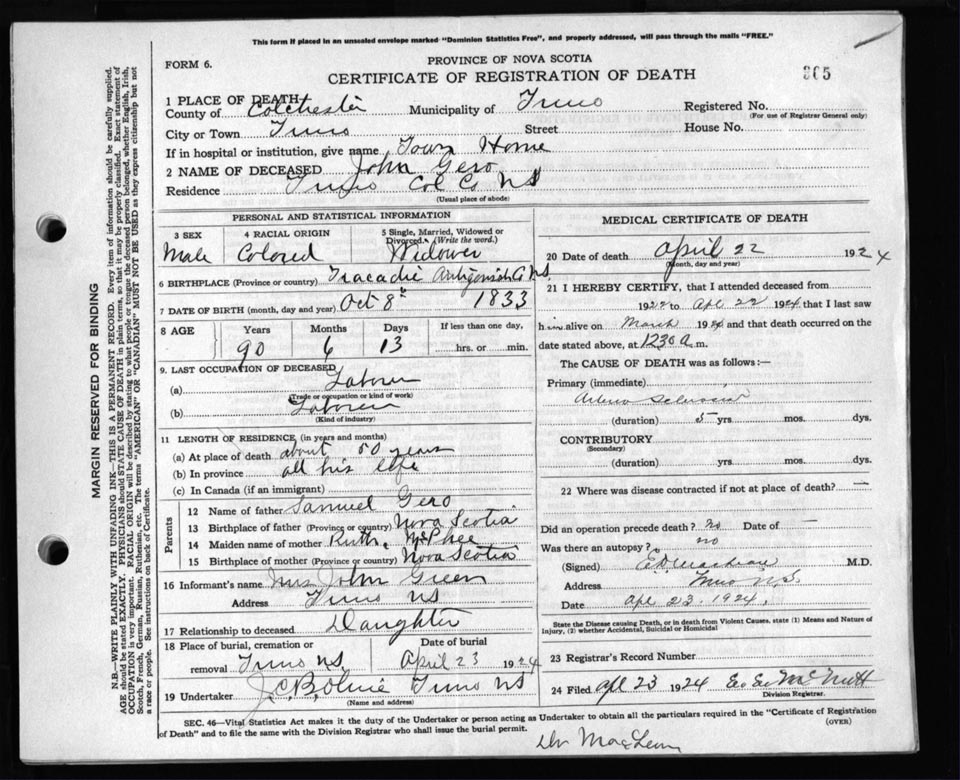 This form if placed in an unsealed envelope marked "Dominion Statistics Free", and properly addressed, will pass through the mails "FREE."
FORM 6.
PROVINCE OF NOVA SCOTIA
CERTIFICATE OF REGISTRATION OF DEATH
865
1 PLACE OF DEATH
County of Colchester Municipality of Truro Registered No.
(For use of Registrar General only)
City or Town Truro Street House No.
If in hospital or institution, give name Town Home
2 NAME OF DECEASED John Gero
Residence Truro Col Co NS
(Usual place of abode)
PERSONAL AND STATISTICAL INFORMATION
3 SEX 4 RACIAL ORIGIN 5 Single, Married, Widowed or Divorced. (Write the word.)
Male Colored Widower
6 BIRTHPLACE (Province or country) Tracadie Antigonish Co NS
7 DATE OF BIRTH (month, day and year) Oct 8th 1833
8 AGE Years Months Days If less than one day,
90 6 13 hrs. or min.
9. LAST OCCUPATION OF DECEASED
(a) Laborer
(Trade or occupation or kind of work)
(b) Laborer
(Kind of industry)
11 LENGTH OF RESIDENCE (in years and months)
(a) At place of death about 50 years
(b) In province all his life
(c) In Canada (if an immigrant)
Parents
12 Name of father Samuel Gero
13 Birthplace of father (Province or country) Nova Scotia
14 Maiden name of mother Ruth McPhee
15 Birthplace of mother (Province or country) Nova Scotia
16 Informant's name Mrs John Green
Address Truro NS
17 Relationship to deceased Daughter
18 Place of burial, cremation or removal Truro NS
Date of burial
April 23 1924
19 Undertaker J.C.B. Truro NS
(Name and address)
MEDICAL CERTIFICATE OF DEATH
20 Date of death April 22 1924
(Month, day and year)
21 I HEREBY CERTIFY, that I attended deceased from
1922 to Apr 22 1924 that I last saw
him alive on March 1924 and that death occurred on
date stated above, at 1230 a.m.
The CAUSE OF DEATH was as follows:—
Primary (immediate)
(duration) 5 yrs mos. dys.
CONTRIBUTORY
(Secondary)
(duration) yrs mos. dys.
22 Where was disease contracted if not at place of death? —
Did an operation precede death? no Date of —
Was there an autopsy? no
(Signed) M.D.
Address Truro N.S.
Date Apr 23. 1924.
State the Disease causing Death, or in death from Violent Causes, state (1) Means and Nature of
Injury, (2) whether Accidental, Suicidal or Homicidal
23 Registrar's Record Number
24 Filed Apl 23 1924 McNutt
Division Registrar.
SEC. 46—Vital Statistics Act makes it the duty of the Undertaker or person acting as Undertaker to obtain all the particulars required in the "Certificate of Registration
of Death" and to file the same with the Division Registrar who shall issue the burial permit.
(OVER)
Dr
MARGIN RESERVED FOR BINDING
N.B.—WRITE PLAINLY WITH UNFADING INK—THIS IS A PERMANENT RECORD. Every item of information should be carefully supplied.
AGE should be stated EXACTLY. PHYSICIANS should STATE CAUSE OF DEATH in plain terms, so that it may be properly classified. Exact statement of
OCCUPATION is very important. RACIAL ORIGIN will be described by stating to what people or tongue the deceased person belonged, whether English, Irish,
Scotch, French, German, Russian, Ruthenian, etc. The terms "AMERICAN" OR "CANADIAN" MUST NOT BE USED as they express citizenship but not
a race or people. See instructions on back of Certificate.